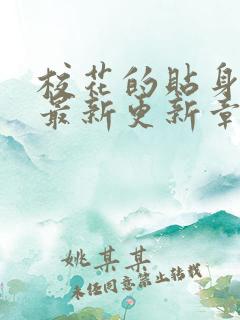 校花的贴身
最新更新章
姚某某
未经同意禁止转载